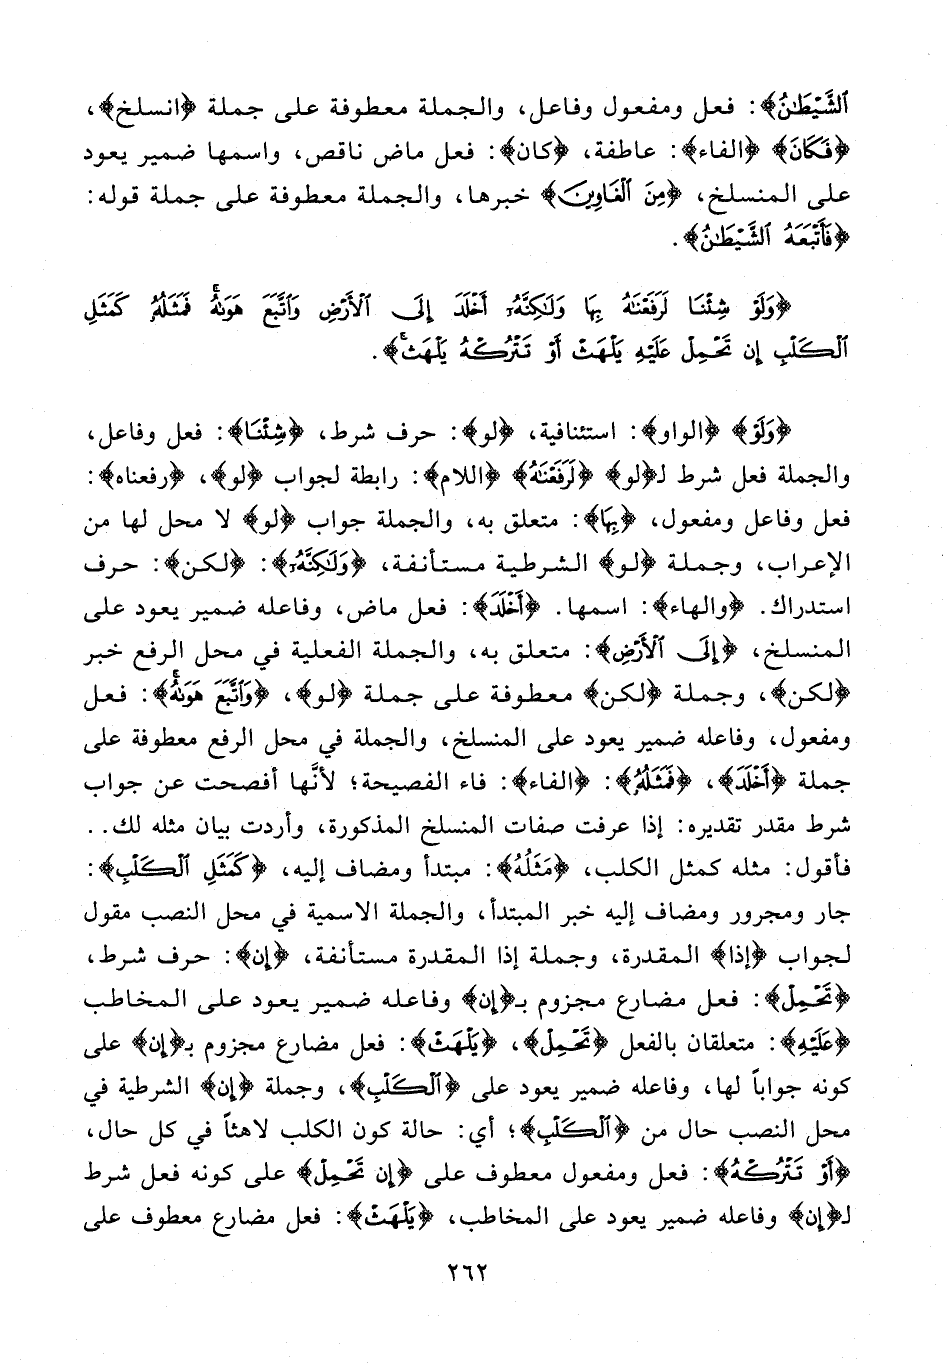 ٱلشَّيْطَٰنُ﴾: فعل ومفعول وفاعل، والجملة معطوفة على جملة ﴿انسلخ﴾،
﴿فَكَانَ﴾ ﴿الفاء﴾: عاطفة، ﴿كان﴾: فعل ماض ناقص، واسمها ضمير يعود
على المنسلخ، ﴿مِنَ ٱلْغَاوِينَ﴾ خبرها، والجملة معطوفة على جملة قوله:
﴿فَأَتْبَعَهُ ٱلشَّيْطَٰنُ﴾.
﴿وَلَوْ شِئْنَا لَرَفَعْنَٰهُ بِهَا وَلَٰكِنَّهُۥٓ أَخْلَدَ إِلَى ٱلْأَرْضِ وَٱتَّبَعَ هَوَىٰهُ ۚ فَمَثَلُهُۥ كَمَثَلِ
ٱلْكَلْبِ إِن تَحْمِلْ عَلَيْهِ يَلْهَثْ أَوْ تَتْرُكْهُ يَلْهَث ۚ﴾.
﴿وَلَوْ﴾ ﴿الواو﴾: استئنافية، ﴿لو﴾: حرف شرط، ﴿شِئْنَا﴾: فعل وفاعل،
والجملة فعل شرط لـ﴿لو﴾ ﴿لَرَفَعْنَٰهُ﴾ ﴿اللام﴾: رابطة لجواب ﴿لو﴾، ﴿رفعناه﴾:
فعل وفاعل ومفعول، ﴿بِهَا﴾: متعلق به، والجملة جواب ﴿لو﴾ لا محل لها من
الإعراب، وجملة ﴿لو﴾ الشرطية مستأنفة، ﴿وَلَٰكِنَّهُۥٓ﴾: ﴿لكن﴾: حرف
استدراك. ﴿والهاء﴾: اسمها. ﴿أَخْلَدَ﴾: فعل ماض، وفاعله ضمير يعود على
المنسلخ، ﴿إِلَى ٱلْأَرْضِ﴾: متعلق به، والجملة الفعلية في محل الرفع خبر
﴿لكن﴾، وجملة ﴿لكن﴾ معطوفة على جملة ﴿لو﴾، ﴿وَٱتَّبَعَ هَوَىٰهُ ۚ﴾: فعل
ومفعول، وفاعله ضمير يعود على المنسلخ، والجملة في محل الرفع معطوفة على
جملة ﴿أَخْلَدَ﴾، ﴿فَمَثَلُهُۥ﴾: ﴿الفاء﴾: فاء الفصيحة؛ لأنَّها أفصحت عن جواب
شرط مقدر تقديره: إذا عرفت صفات المنسلخ المذكورة، وأردت بيان مثله لك..
فأقول: مثله كمثل الكلب، ﴿مَثَلُهُ﴾: مبتدأ ومضاف إليه، ﴿كَمَثَلِ ٱلْكَلْبِ﴾:
جار ومجرور ومضاف إليه خبر المبتدأ، والجملة الاسمية في محل النصب مقول
لجواب ﴿إذا﴾ المقدرة، وجملة إذا المقدرة مستأنفة، ﴿إن﴾: حرف شرط،
﴿تَحْمِلْ﴾: فعل مضارع مجزوم بـ﴿إن﴾ وفاعله ضمير يعود على المخاطب
﴿عَلَيْهِ﴾: متعلقان بالفعل ﴿تَحْمِلْ﴾، ﴿يَلْهَثْ﴾: فعل مضارع مجزوم بـ﴿إن﴾ على
كونه جواباً لها، وفاعله ضمير يعود على ﴿ٱلْكَلْبِ﴾، وجملة ﴿إن﴾ الشرطية في
محل النصب حال من ﴿ٱلْكَلْبِ﴾؛ أي: حالة كون الكلب لاهثاً في كل حال،
﴿أَوْ تَتْرُكْهُ﴾: فعل ومفعول معطوف على ﴿إِن تَحْمِلْ﴾ على كونه فعل شرط
لـ﴿إن﴾ وفاعله ضمير يعود على المخاطب، ﴿يَلْهَثْ﴾: فعل مضارع معطوف على
٢٦٢